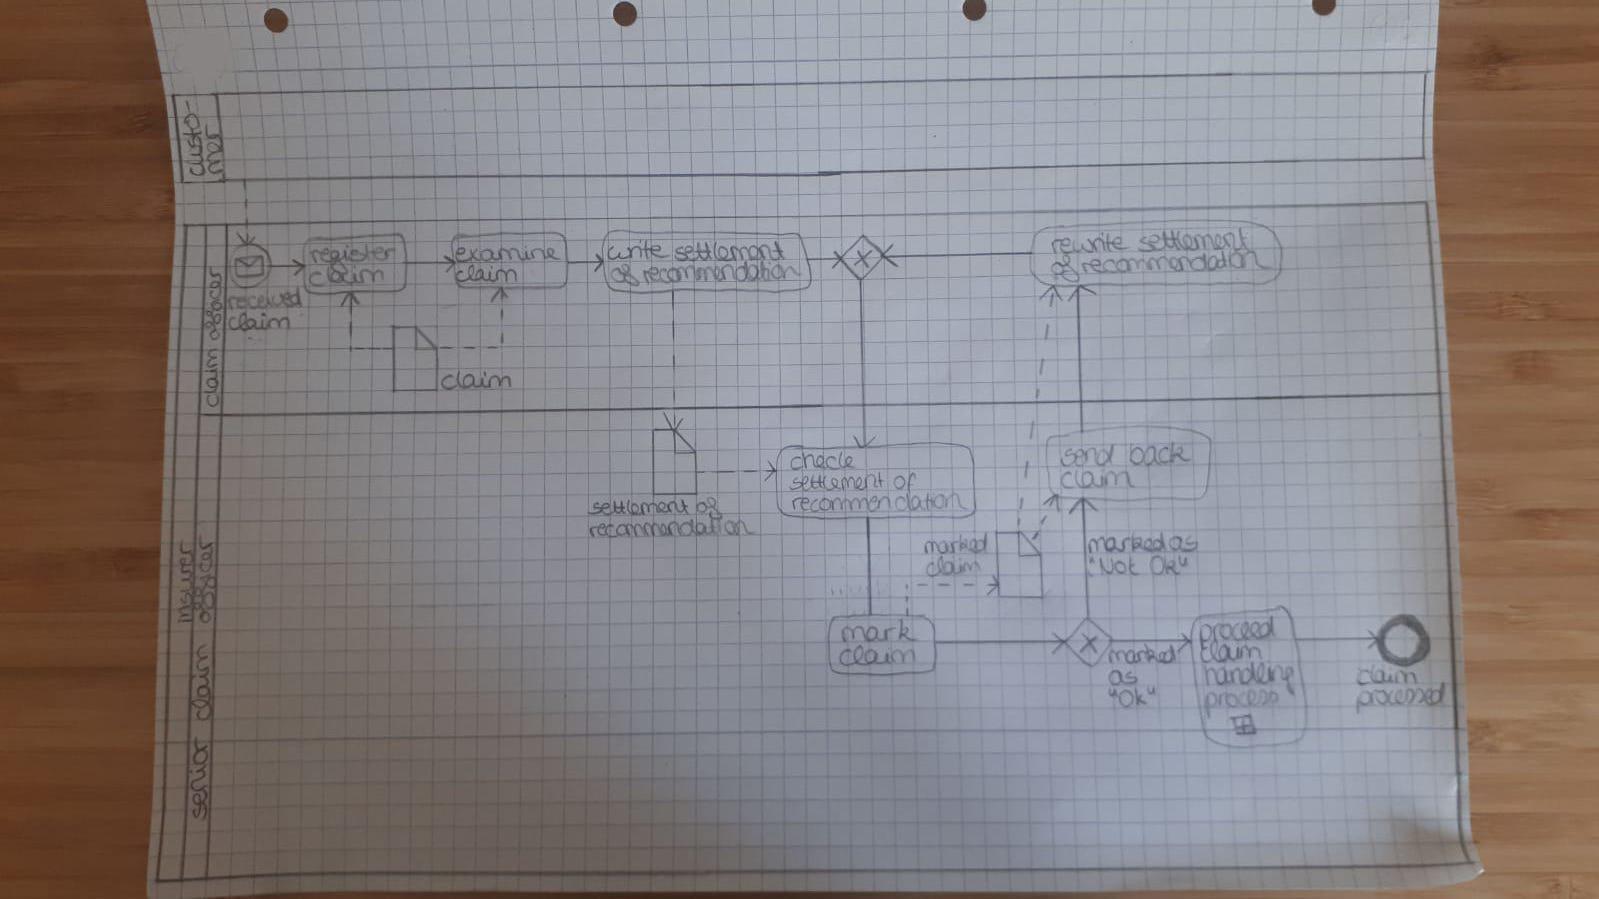 custo-
mer
claim officer
received
claim
register
claim
examine
claim
claim
write settlement
of recommendation
rewrite settlement
of recommendation
insurer
senior claim officer
settlement of
recommendation
check
settlement of
recommendation
mark
claim
marked
claim
send back
claim
marked as
"Not Ok"
marked
as
"Ok"
proceed
claim
handling
process
claim
processed